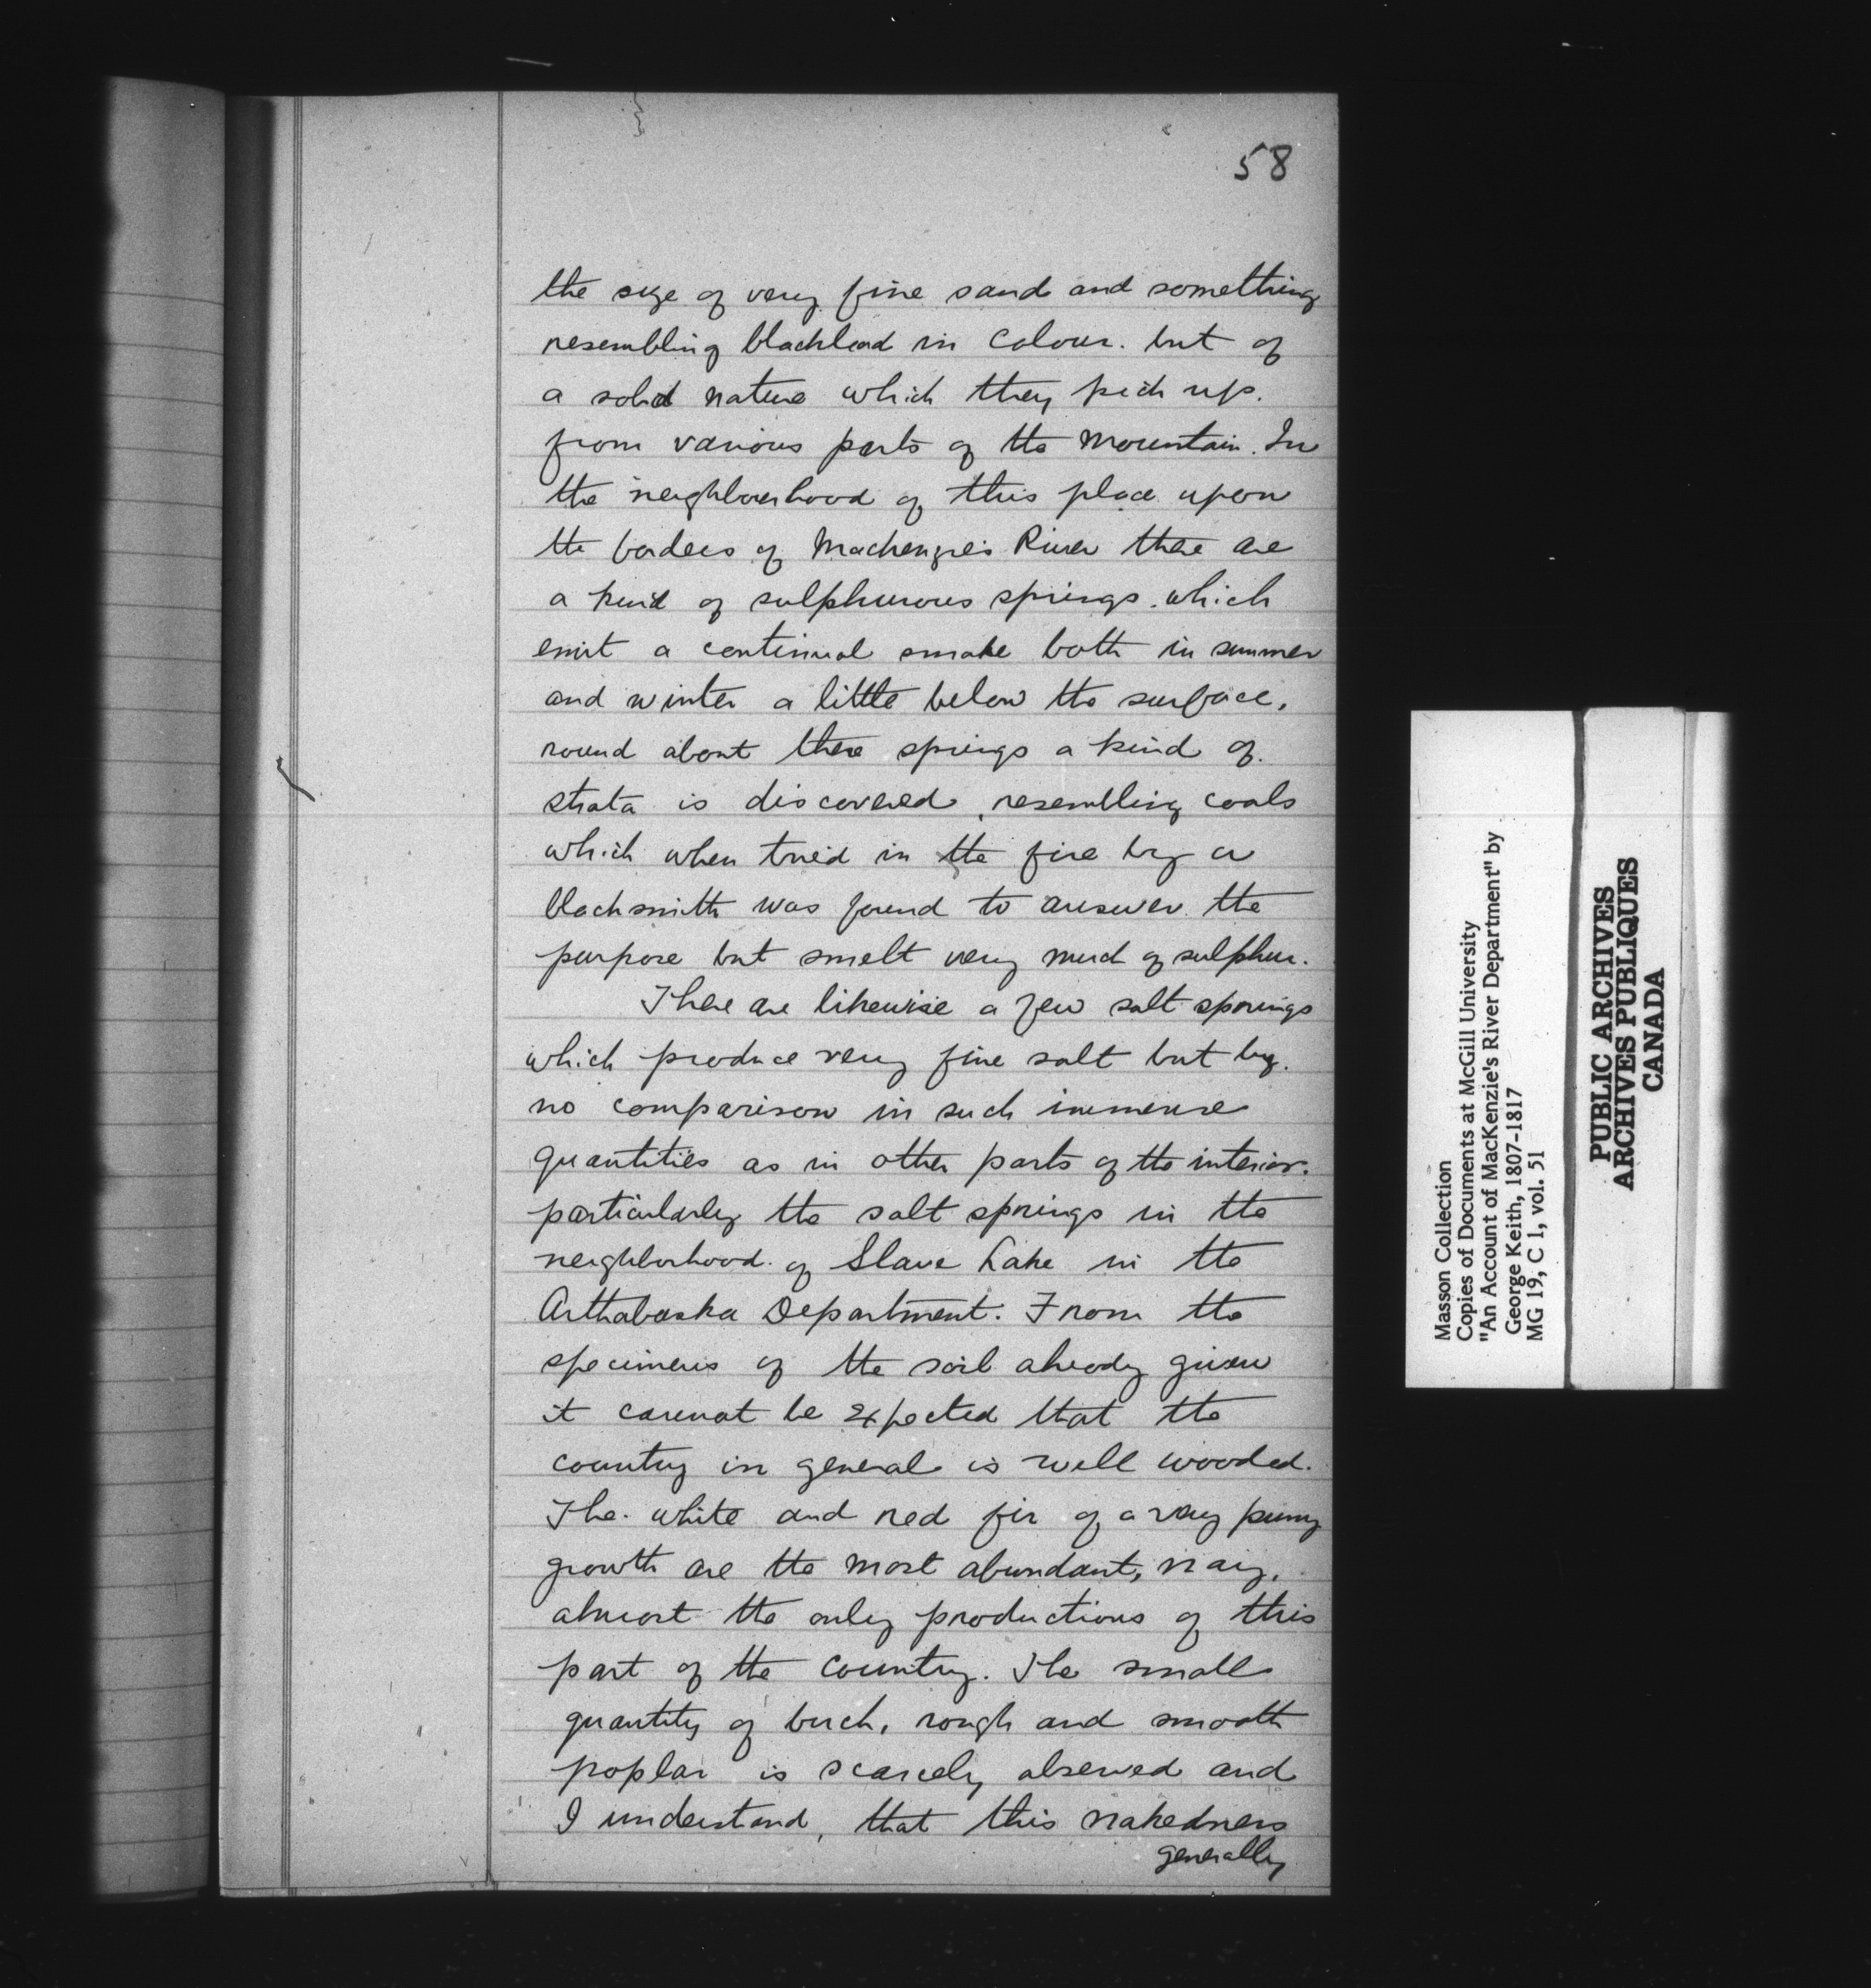 58
the size of very fine sand and something
resembling blacklead in colour. but of
a solid nature which they pick up.
from various parts of the Mountain. In
the neighbourhood of this place upon
the borders of Mackenzie's River there are
a kind of sulphurous springs. which
emit a continual smoke both in summer
and winter a little below the surface,
round about these springs a kind of.
strata is discovered, resembling coals
which when tried in the fire by a
blacksmith was found to answer the
purpose but smelt very much of sulphur.
There are likewise a few salt springs
which produce very fine salt but by.
no comparison in such immense
quantities as in other parts of the interior.
particularly the salt springs in the
neighborhood. of Slave Lake in the
Arthabaska Department. From the
specimens of the soil already given
it cannot be expected that the
country in general is well wooded.
The. white and red fir of a very puny
growth are the most abundant, nay,
almost the only productions of this
part of the country. The small
quantity of birch, rough and smooth
poplar is scarcely observed and
I understand, that this nakedness
generally
Masson Collection
Copies of Documents at McGill University
"An Account of MacKenzie's River Department" by
George Keith, 1807-1817
MG 19, C 1, vol. 51
PUBLIC ARCHIVES
ARCHIVES PUBLIQUES
CANADA